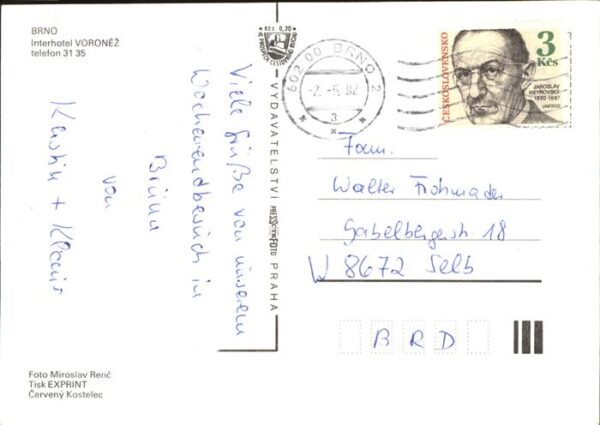 BRNO
Interhotel VORONĚŽ
telefon 31 35
Viele Grüße von unserem
Wochenendbesuch in
Brünn
von
Kerstin + Klaus
Kčs 0,20
VE PROSPĚCH CESTOVNÍHO RUCHU
VYDAVATELSTVÍ PRESSFOTO PRAHA
602 00 BRNO 2
-2.-6.92
a
ČESKOSLOVENSKO
3
Kčs
JAROSLAV
HEYROVSKÝ
1890-1967
UNESCO
Fam.
Walter Frohmader
Gabelbergerstr. 18
W 8672 Selb
BRD
Foto Miroslav Renč
Tisk EXPRINT
Červený Kostelec